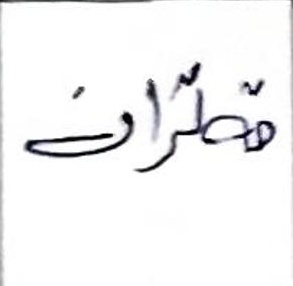 قطران